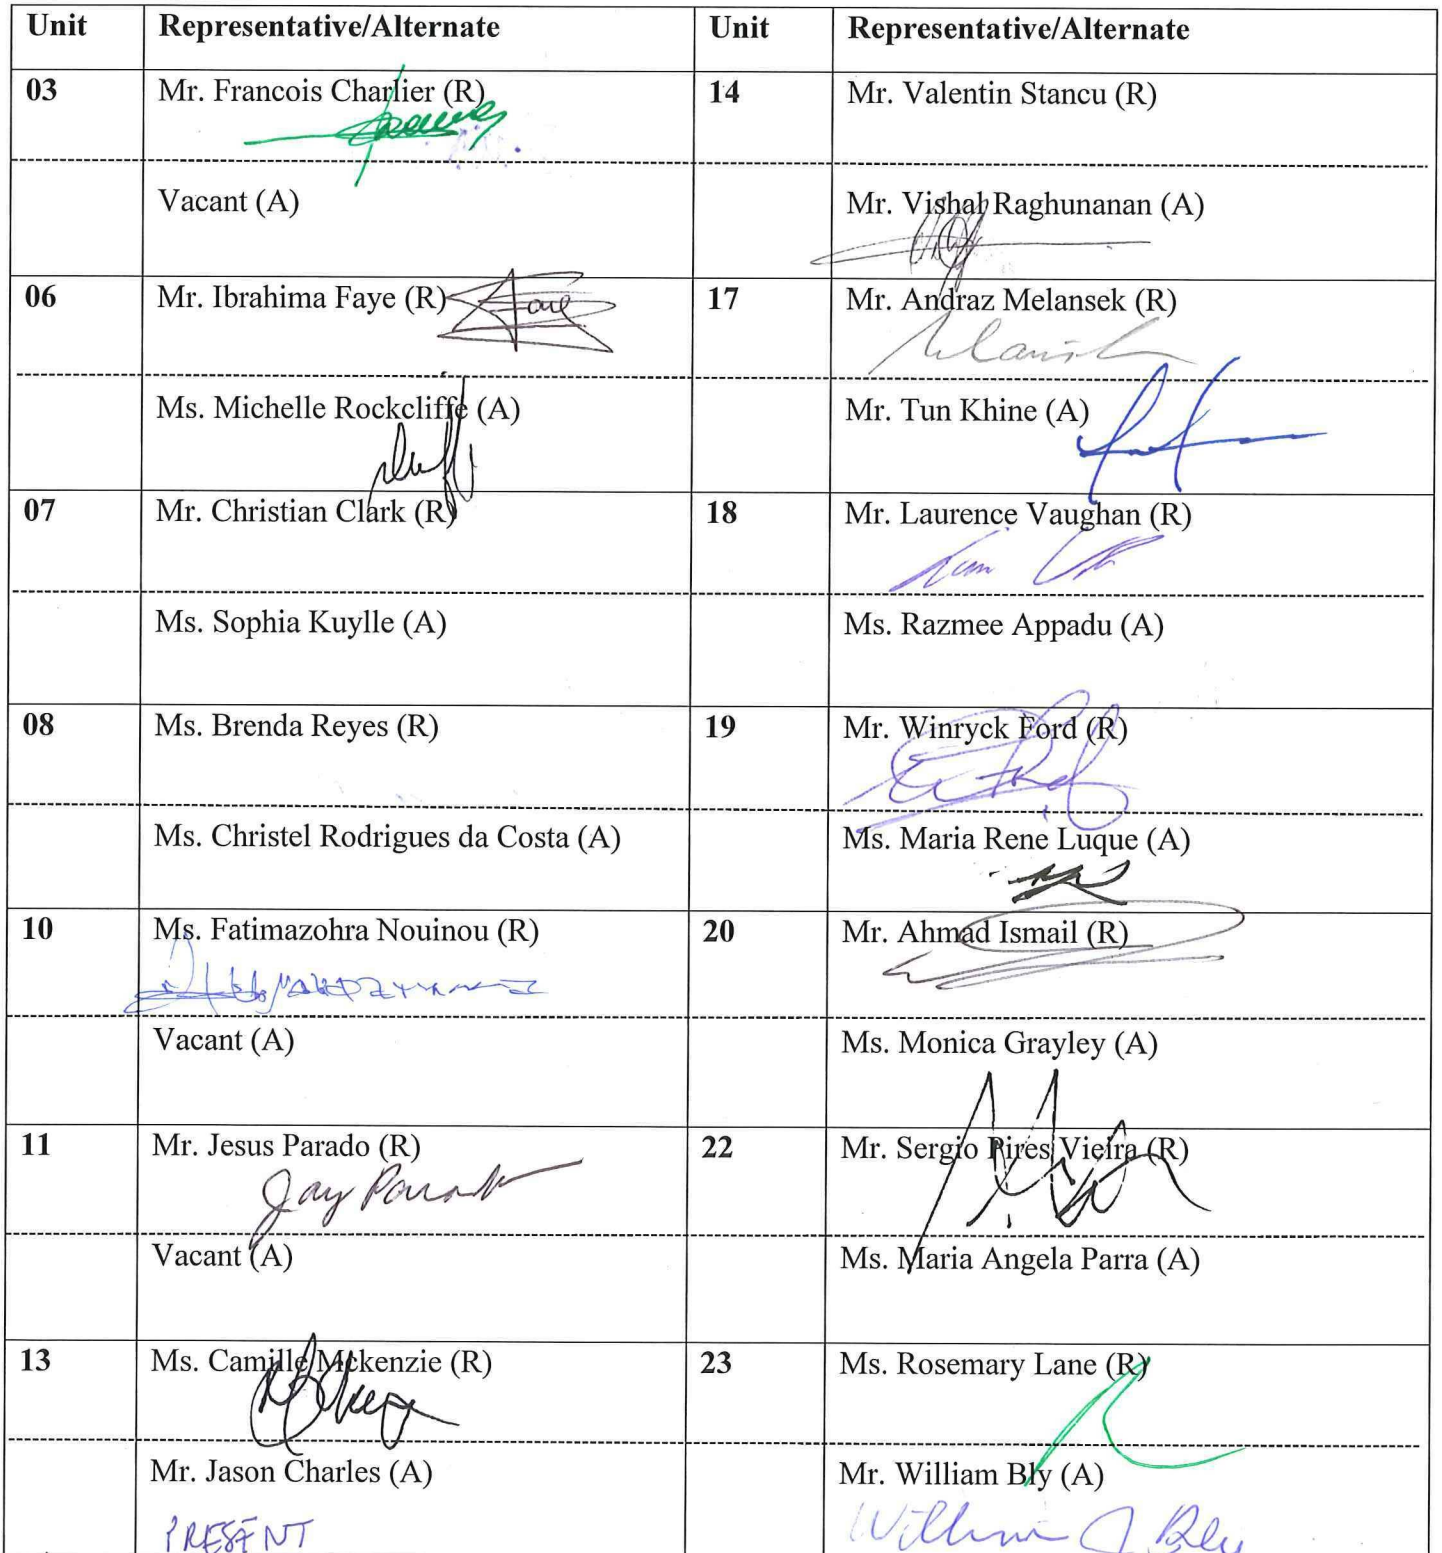 Unit Representative/Alternate Unit Representative/Alternate
03 Mr. Francois Charlier (R) 14 Mr. Valentin Stancu (R)
Vacant (A) Mr. Vishal Raghunanan (A)
06 Mr. Ibrahima Faye (R) 17 Mr. Andraz Melansek (R)
Faye
Ms. Michelle Rockcliffe (A) Mr. Tun Khine (A)
07 Mr. Christian Clark (R) 18 Mr. Laurence Vaughan (R)
Ms. Sophia Kuylle (A) Ms. Razmee Appadu (A)
08 Ms. Brenda Reyes (R) 19 Mr. Winryck Ford (R)
Ms. Christel Rodrigues da Costa (A) Ms. Maria Rene Luque (A)
10 Ms. Fatimazohra Nouinou (R) 20 Mr. Ahmad Ismail (R)
Vacant (A) Ms. Monica Grayley (A)
11 Mr. Jesus Parado (R) 22 Mr. Sergio Pires Vieira (R)
Jay Parado
Vacant (A) Ms. Maria Angela Parra (A)
13 Ms. Camille Mckenzie (R) 23 Ms. Rosemary Lane (R)
Mr. Jason Charles (A) Mr. William Bly (A)
PRESENT William J. Bly